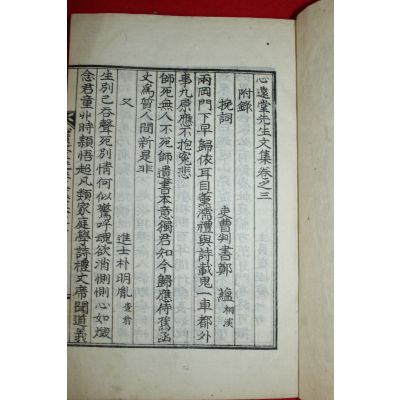 心遠堂先生文集卷之三
附錄
挽詞
吏曹判書鄭 蘊 桐溪
兩岡門下早歸依耳目薰濡禮與詩載鬼一車都外
事九原應不抱冤悲
師死無人不死師遺書本意獨君知今歸應侍舊函
丈爲質人間新是非
又
進士朴明胤
坐別已吞聲死別情何似驚呼魂欲消惻惻心如燬
念君童丱時穎悟超凡類家庭學詩禮丈席聞道義